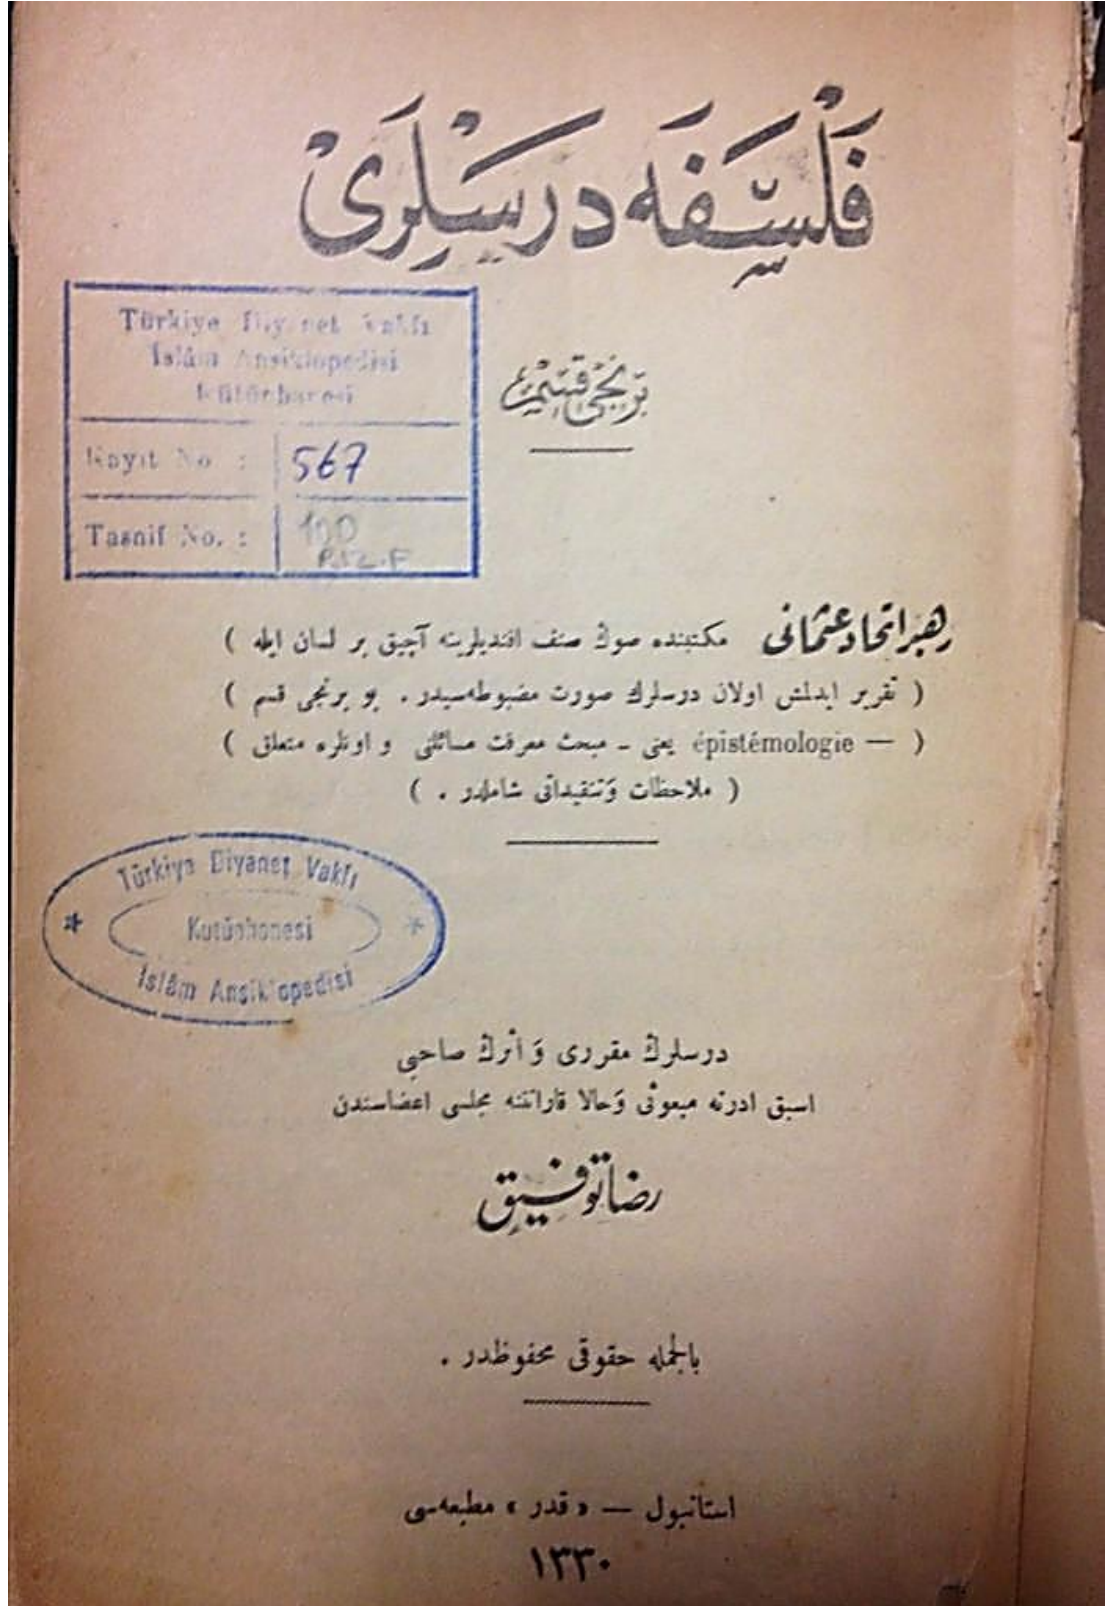 فَلْسَفَه دَرْسْلَرِىْ
Türkiye Diyanet Vakfı
İslâm Ansiklopedisi
Kütüphanesi
برنجى قسم
Kayıt No : 567
Tasnif No. : 100
RIZ.F
رهبر اتحاد عثمانى مكتبنده صوڭ صنف افنديلرينه آچيق بر لسان ايله )
( تقرير ايدلمش اولان درسلرك صورت مضبوطه‌سيدر . بو برنجى قسم )
( — épistémologie يعنى ـ مبحث معرفت مسائلنى و اونلره متعلق )
( ملاحظات وَتنقيداتى شاملدر . )
Türkiye Diyanet Vakfı
Kütüphanesi
İslâm Ansiklopedisi
درسلرڭ مقررى وَ اثرڭ صاحبى
اسبق ادرنه مبعوثى وَحالا قارانتنه مجلسى اعضاسندن
رضا توفيق
بالجمله حقوقى محفوظدر .
استانبول — « قدر » مطبعه‌سى
١٣٣٠